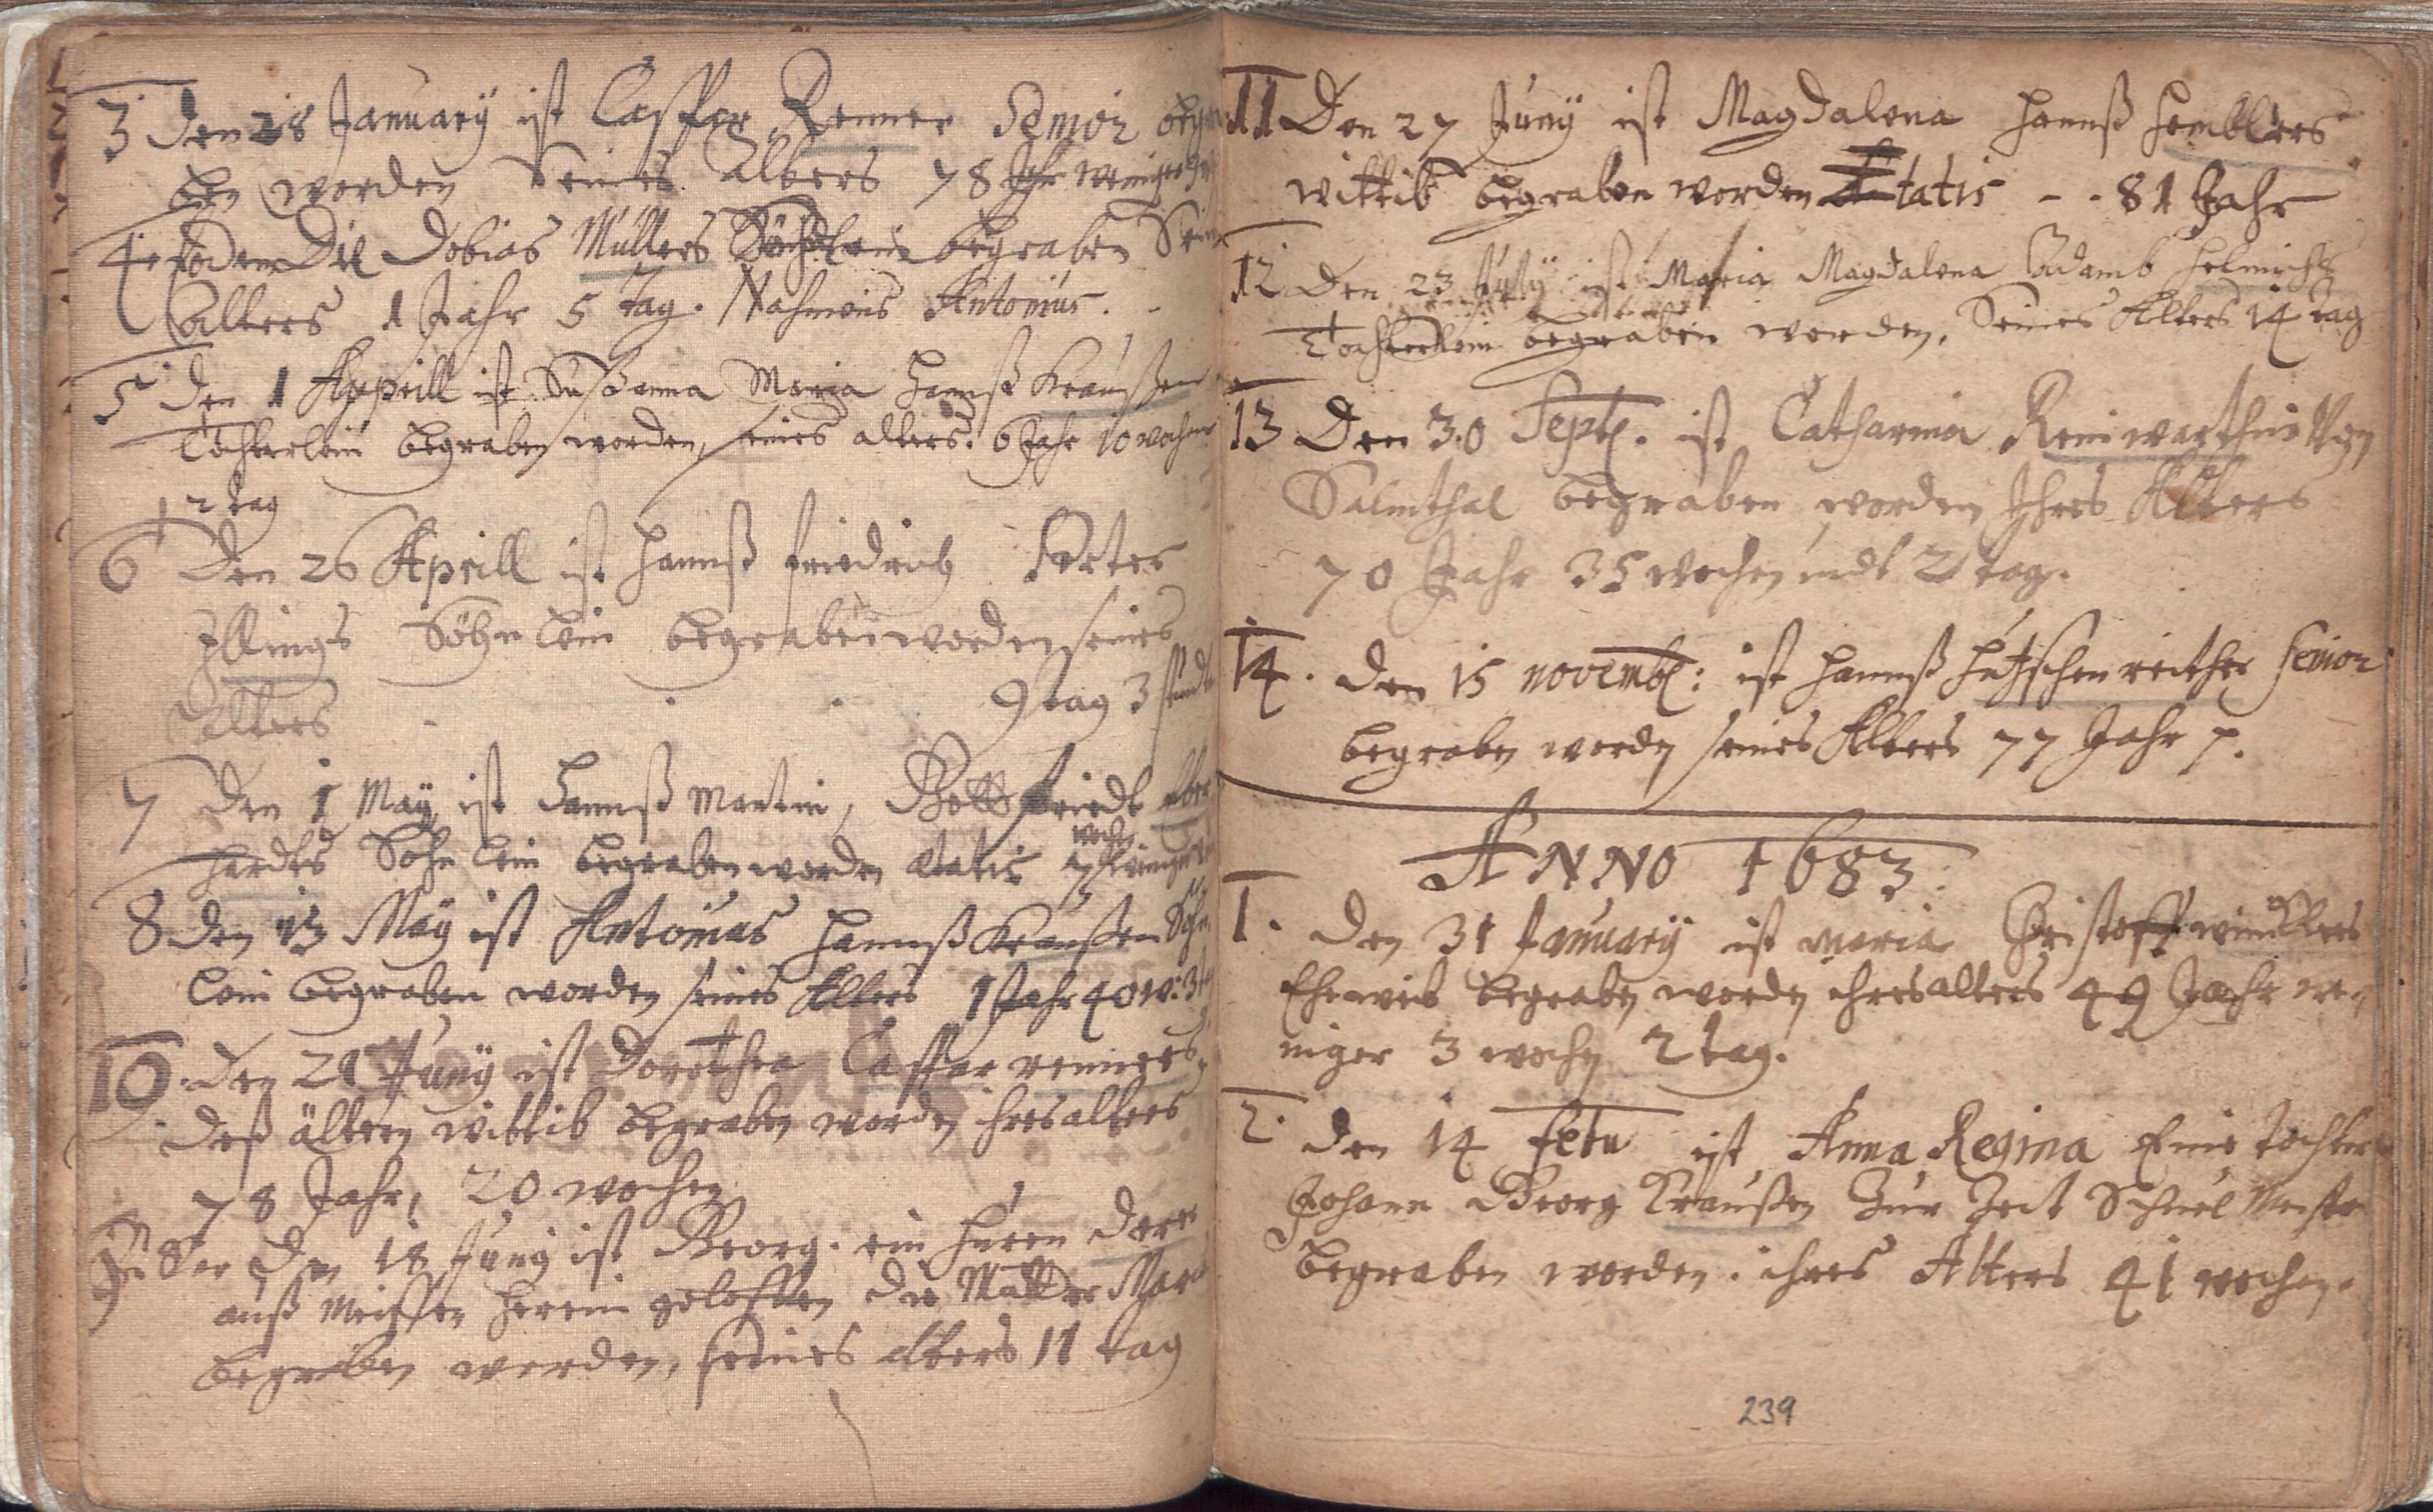 3 den 28 January ist Casper Renner Senior begra
ben worden Seines Alters 78 Jhr weniger
4. Eodem Die Tobias Müllers Söhnlein begraben Sein
Alters 1 Jahr 5 tag. Nahmens Antonius.
5 den 1 Apprill ist Susanna Maria Hannß Kraußen
Töchterlein begraben worden, seines alters. 6 Jahr 10 wochen
2 tag
6 Den 26 Aprill ist Hannß Friedrich
Illings Söhnlein begraben worden seines
Alters . . . 9 tag 3 stundt
7 den 1 May ist Hannß Martin, Gottfriedt Eber
hardts Söhnlein begraben worden ætatis 7 wochen weniger
8 den 13 May ist Antonius Hannß Kraußen Söhn
lein begraben worden seines Alters 1 Jahr 40 w: 3
10. den 21 Juny ist Dorothea Casper renners
deß ältern wittib begraben worden ihres alters
78 Jahr, 20 wochen
den 18 Juny ist Georg. ein Huren
auß Meissen herein geloffen die Mutter Mar
begraben worden, seines alters 11 tag
11 Den 27 Juny ist Magdalena Hannß
wittib begraben worden Ætatis - - 81 Jahr
12 Den 23 July ist Maria Magdalena Adamb Helmichs
Töchterlein begraben worden, Seines Alters 14 tag
13 Den 30 Septb. ist Catharina Reinwarthin Von
Salmthal begraben worden Ihres Alters
70 Jahr 35 wochen undt 2 tag.
14. den 15 novemb: ist Hannß Hutschenreither senior
begraben worden seines Alters 77 Jahr 7.
ANNO 1683:
1. den 31 January ist maria Christoff Wincklers
Eheweib begraben worden ihres alters 49 Jahr we-
niger 3 wochen 2 tag.
2. den 14 Febr ist Anna Regina Eine tochter
Johann Georg Kraußen Zur Zeit Schuel Meister
begraben worden. ihres Alters 41 wochen.
239